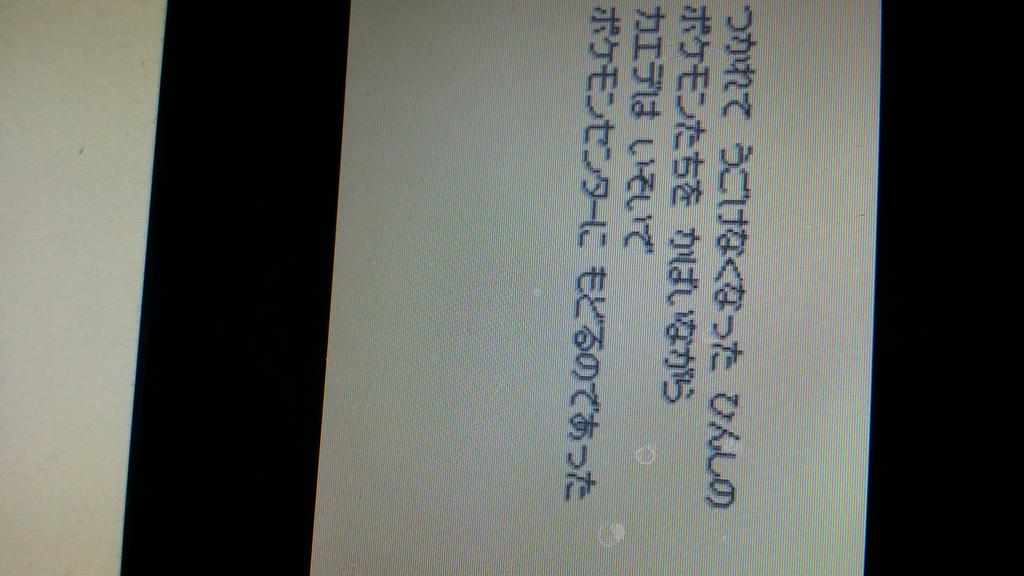 つかれて うごけなくなった ひんしの
ポケモンたちを かばいながら
カエデは いそいで
ポケモンセンターに もどるのであった